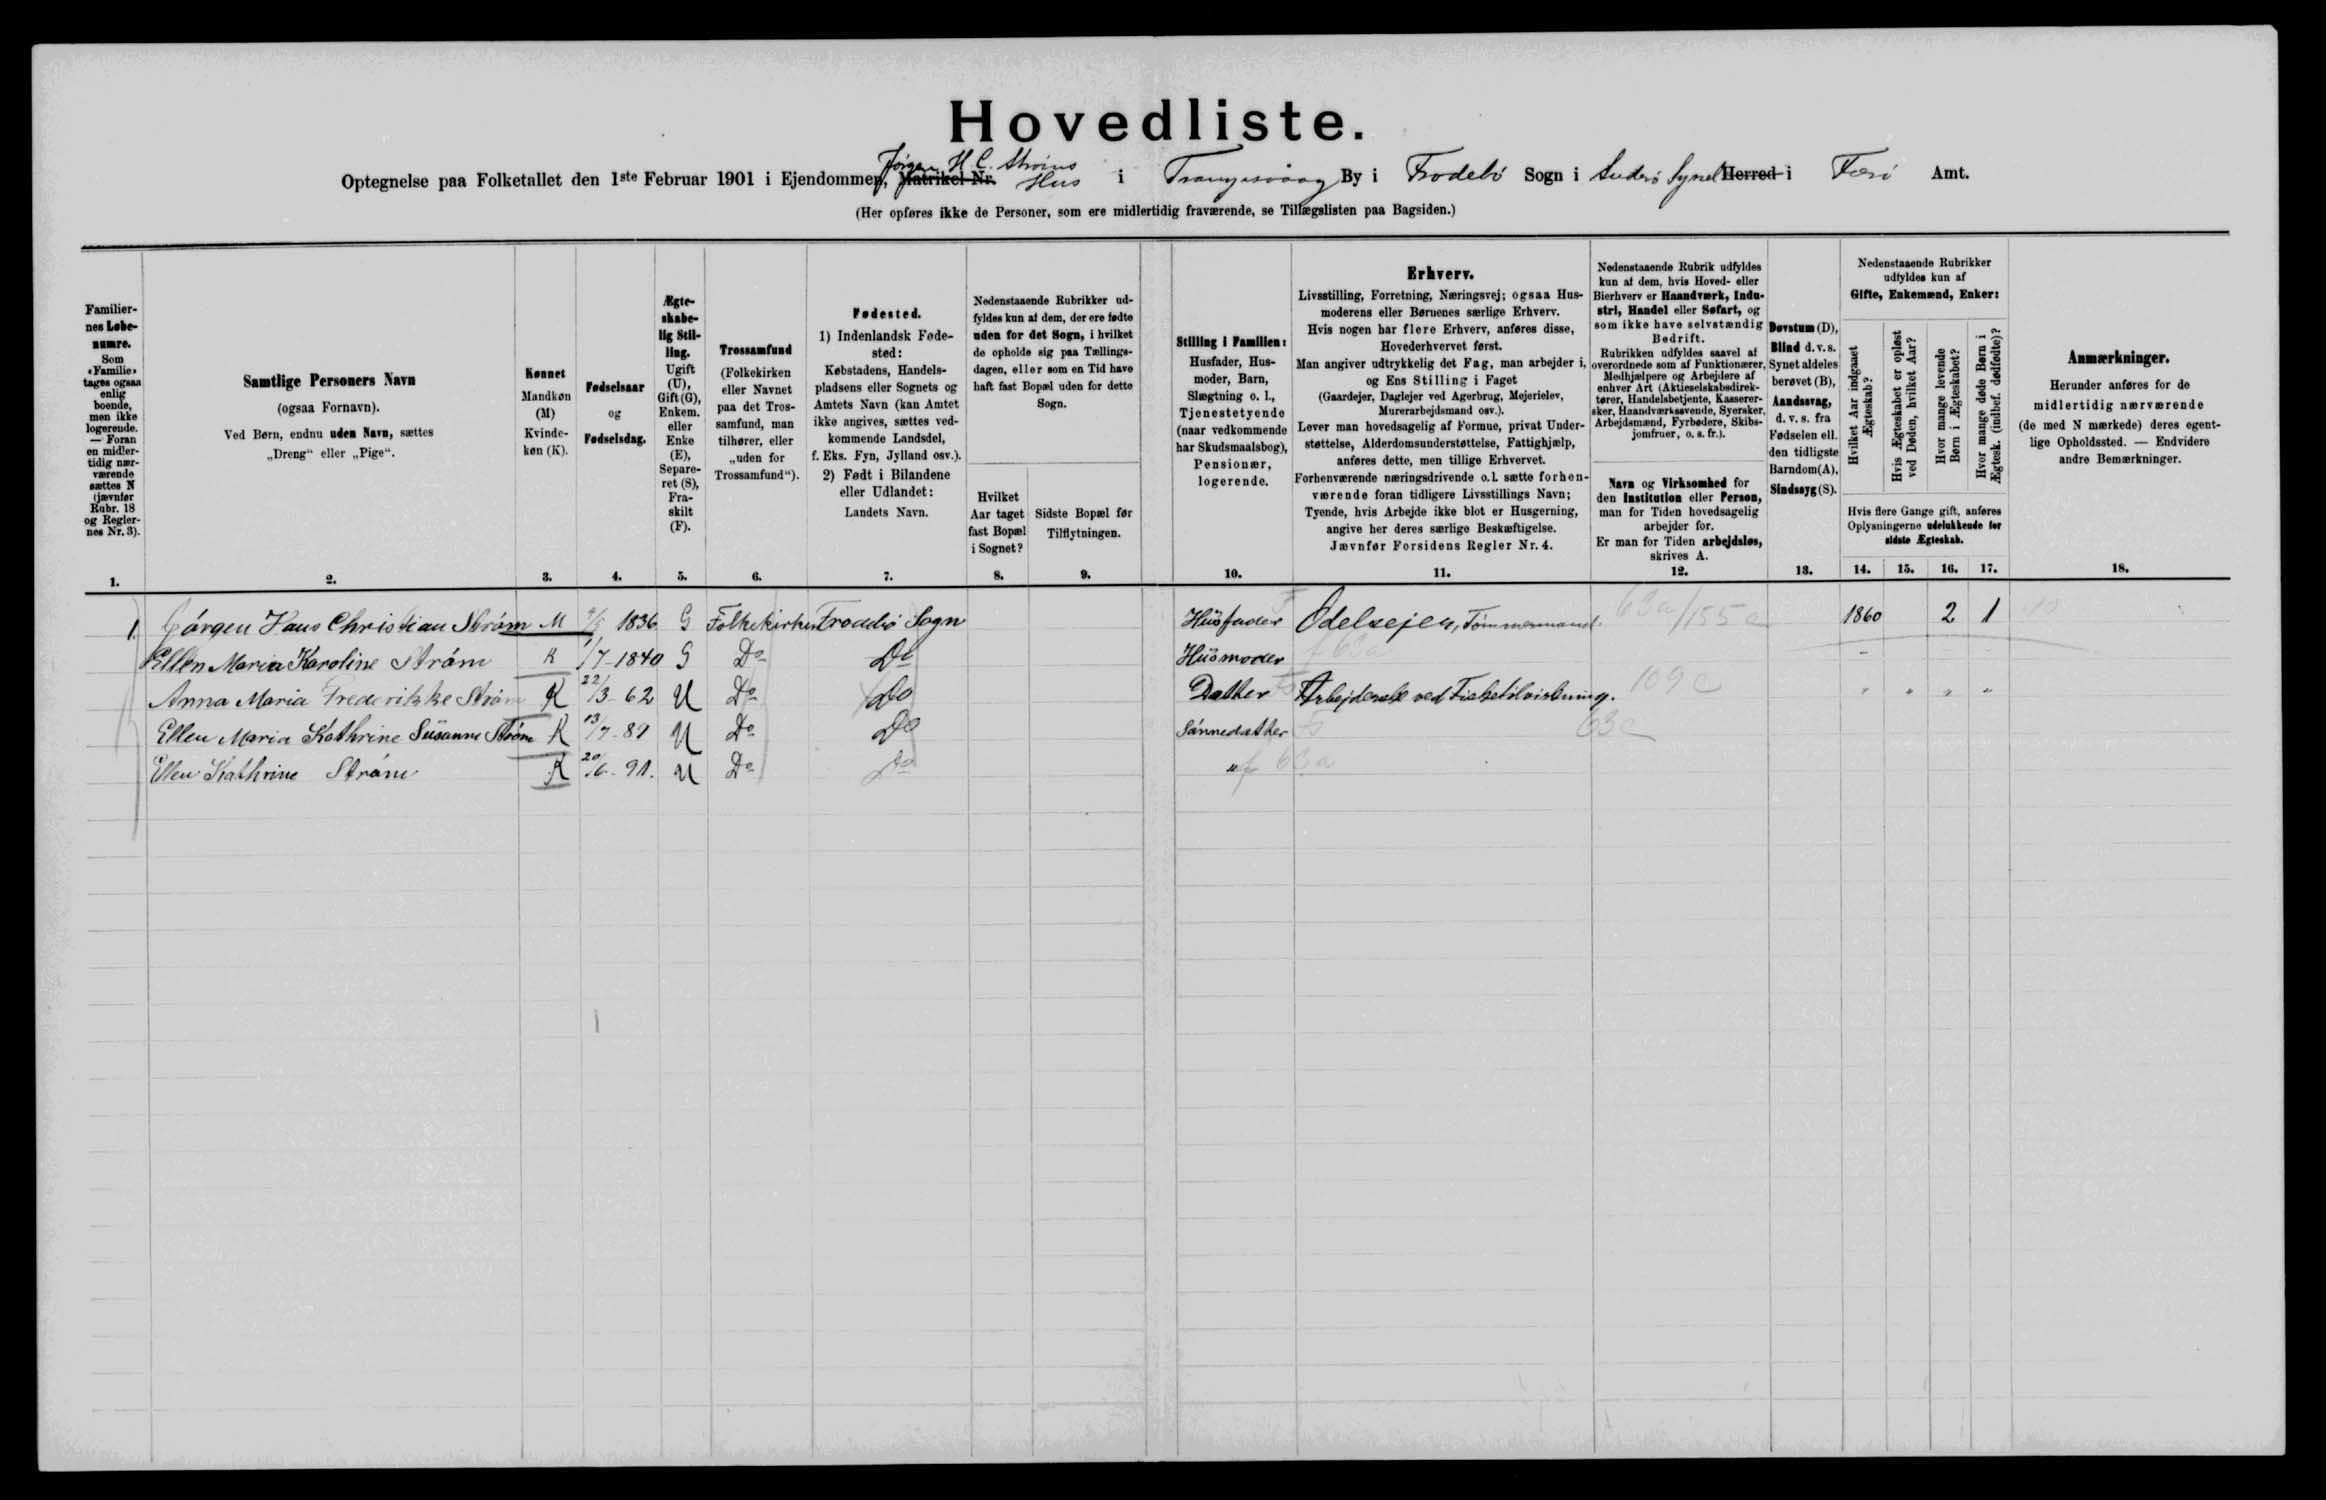 Hovedliste.
Jørgen H. C. Strøms
Optegnelse paa Folketallet den 1ste Februar 1901 i Ejendommen, Matrikel Nr. Hus i Trangisvaag By i Frodebø Sogn i Suderø Syssel Herred i Færø Amt.
(Her opføres ikke de Personer, som ere midlertidig fraværende, se Tillægslisten paa Bagsiden.)
Familiernes Løbenumre.
Som «Familie» tages ogsaa enlig boende, men ikke logerende. — Foran en midlertidig nærværende sættes N (jævnfør Rubr. 18 og Reglernes Nr. 3).
1.
Samtlige Personers Navn
(ogsaa Fornavn).
Ved Børn, endnu uden Navn, sættes
„Dreng“ eller „Pige“.
2.
Kønnet
Mandkøn (M)
Kvindekøn (K).
3.
Fødselsaar
og
Fødselsdag.
4.
Ægteskabelig Stilling.
Ugift (U), Gift (G), Enkem. eller Enke (E), Separeret (S), Fraskilt (F).
5.
Trossamfund
(Folkekirken eller Navnet paa det Trossamfund, man tilhører, eller „uden for Trossamfund“).
6.
Fødested.
1) Indenlandsk Fødested:
Købstadens, Handelspladsens eller Sognets og Amtets Navn (kan Amtet ikke angives, sættes vedkommende Landsdel, f. Eks. Fyn, Jylland osv.).
2) Født i Bilandene eller Udlandet:
Landets Navn.
7.
Nedenstaaende Rubrikker udfyldes kun af dem, der ere fødte uden for det Sogn, i hvilket de opholde sig paa Tællingsdagen, eller som en Tid have haft fast Bopæl uden for dette Sogn.
Hvilket Aar taget fast Bopæl i Sognet?
8.
Sidste Bopæl før Tilflytningen.
9.
Stilling i Familien:
Husfader, Husmoder, Barn, Slægtning o. l., Tjenestetyende (naar vedkommende har Skudsmaalsbog), Pensionær, logerende.
10.
Erhverv.
Livsstilling, Forretning, Næringsvej; ogsaa Husmoderens eller Børnenes særlige Erhverv.
Hvis nogen har flere Erhverv, anføres disse, Hovederhvervet først.
Man angiver udtrykkelig det Fag, man arbejder i, og Ens Stilling i Faget
(Gaardejer, Daglejer ved Agerbrug, Mejerielev, Murerarbejdsmand osv.).
Lever man hovedsagelig af Formue, privat Understøttelse, Alderdomsunderstøttelse, Fattighjælp, anføres dette, men tillige Erhvervet.
Forhenværende næringsdrivende o. l. sætte forhenværende foran tidligere Livsstillings Navn;
Tyende, hvis Arbejde ikke blot er Husgerning, angive her deres særlige Beskæftigelse.
Jævnfør Forsidens Regler Nr. 4.
11.
Nedenstaaende Rubrik udfyldes kun af dem, hvis Hoved- eller Bierhverv er Haandværk, Industri, Handel eller Søfart, og som ikke have selvstændig Bedrift.
Rubrikken udfyldes saavel af overordnede som af Funktionærer, Medhjælpere og Arbejdere af enhver Art (Aktieselskabsdirektører, Handelsbetjente, Kasserersker, Haandværkssvende, Syersker, Arbejdsmænd, Fyrbødere, Skibsjomfruer, o. s. fr.).
Navn og Virksomhed for den Institution eller Person, man for Tiden hovedsagelig arbejder for.
Er man for Tiden arbejdsløs, skrives A.
12.
Døvstum (D),
Blind d. v. s. Synet aldeles berøvet (B),
Aandssvag, d. v. s. fra Fødselen ell. den tidligste Barndom (A),
Sindssyg (S).
13.
Nedenstaaende Rubrikker udfyldes kun af
Gifte, Enkemænd, Enker:
Hvilket Aar indgaaet Ægteskab?
Hvis Ægteskabet er opløst ved Døden, hvilket Aar?
Hvor mange levende Børn i Ægteskabet?
Hvor mange døde Børn i Ægtesk. (indbef. dødfødte)?
Hvis flere Gange gift, anføres Oplysningerne udelukkende for sidste Ægteskab.
14. 15. 16. 17.
Anmærkninger.
Herunder anføres for de midlertidig nærværende (de med N mærkede) deres egentlige Opholdssted. — Endvidere andre Bemærkninger.
18.
1. Jórgen Hans Christian Stróm M 1836 G Folkekirken Frodebø Sogn Húsfader Odelsejer, Tømmermand. 63a/155a 1860 2 1 10
Ellen Maria Karoline Stróm K 1/7-1840 G Do Do Húsmoder f 63a
Anna Maria Frederikke Strøm K 22/3-62 U Do Do Datter Arbejderske ved Fisketilvirkning. 109c " " " "
Ellen Maria Kathrine Súsanne Strøm K 13/7-89 U Do Do Sónnedatter 63c
Ellen Kathrine Stróm K 20/6-91. U Do Do " f 63a